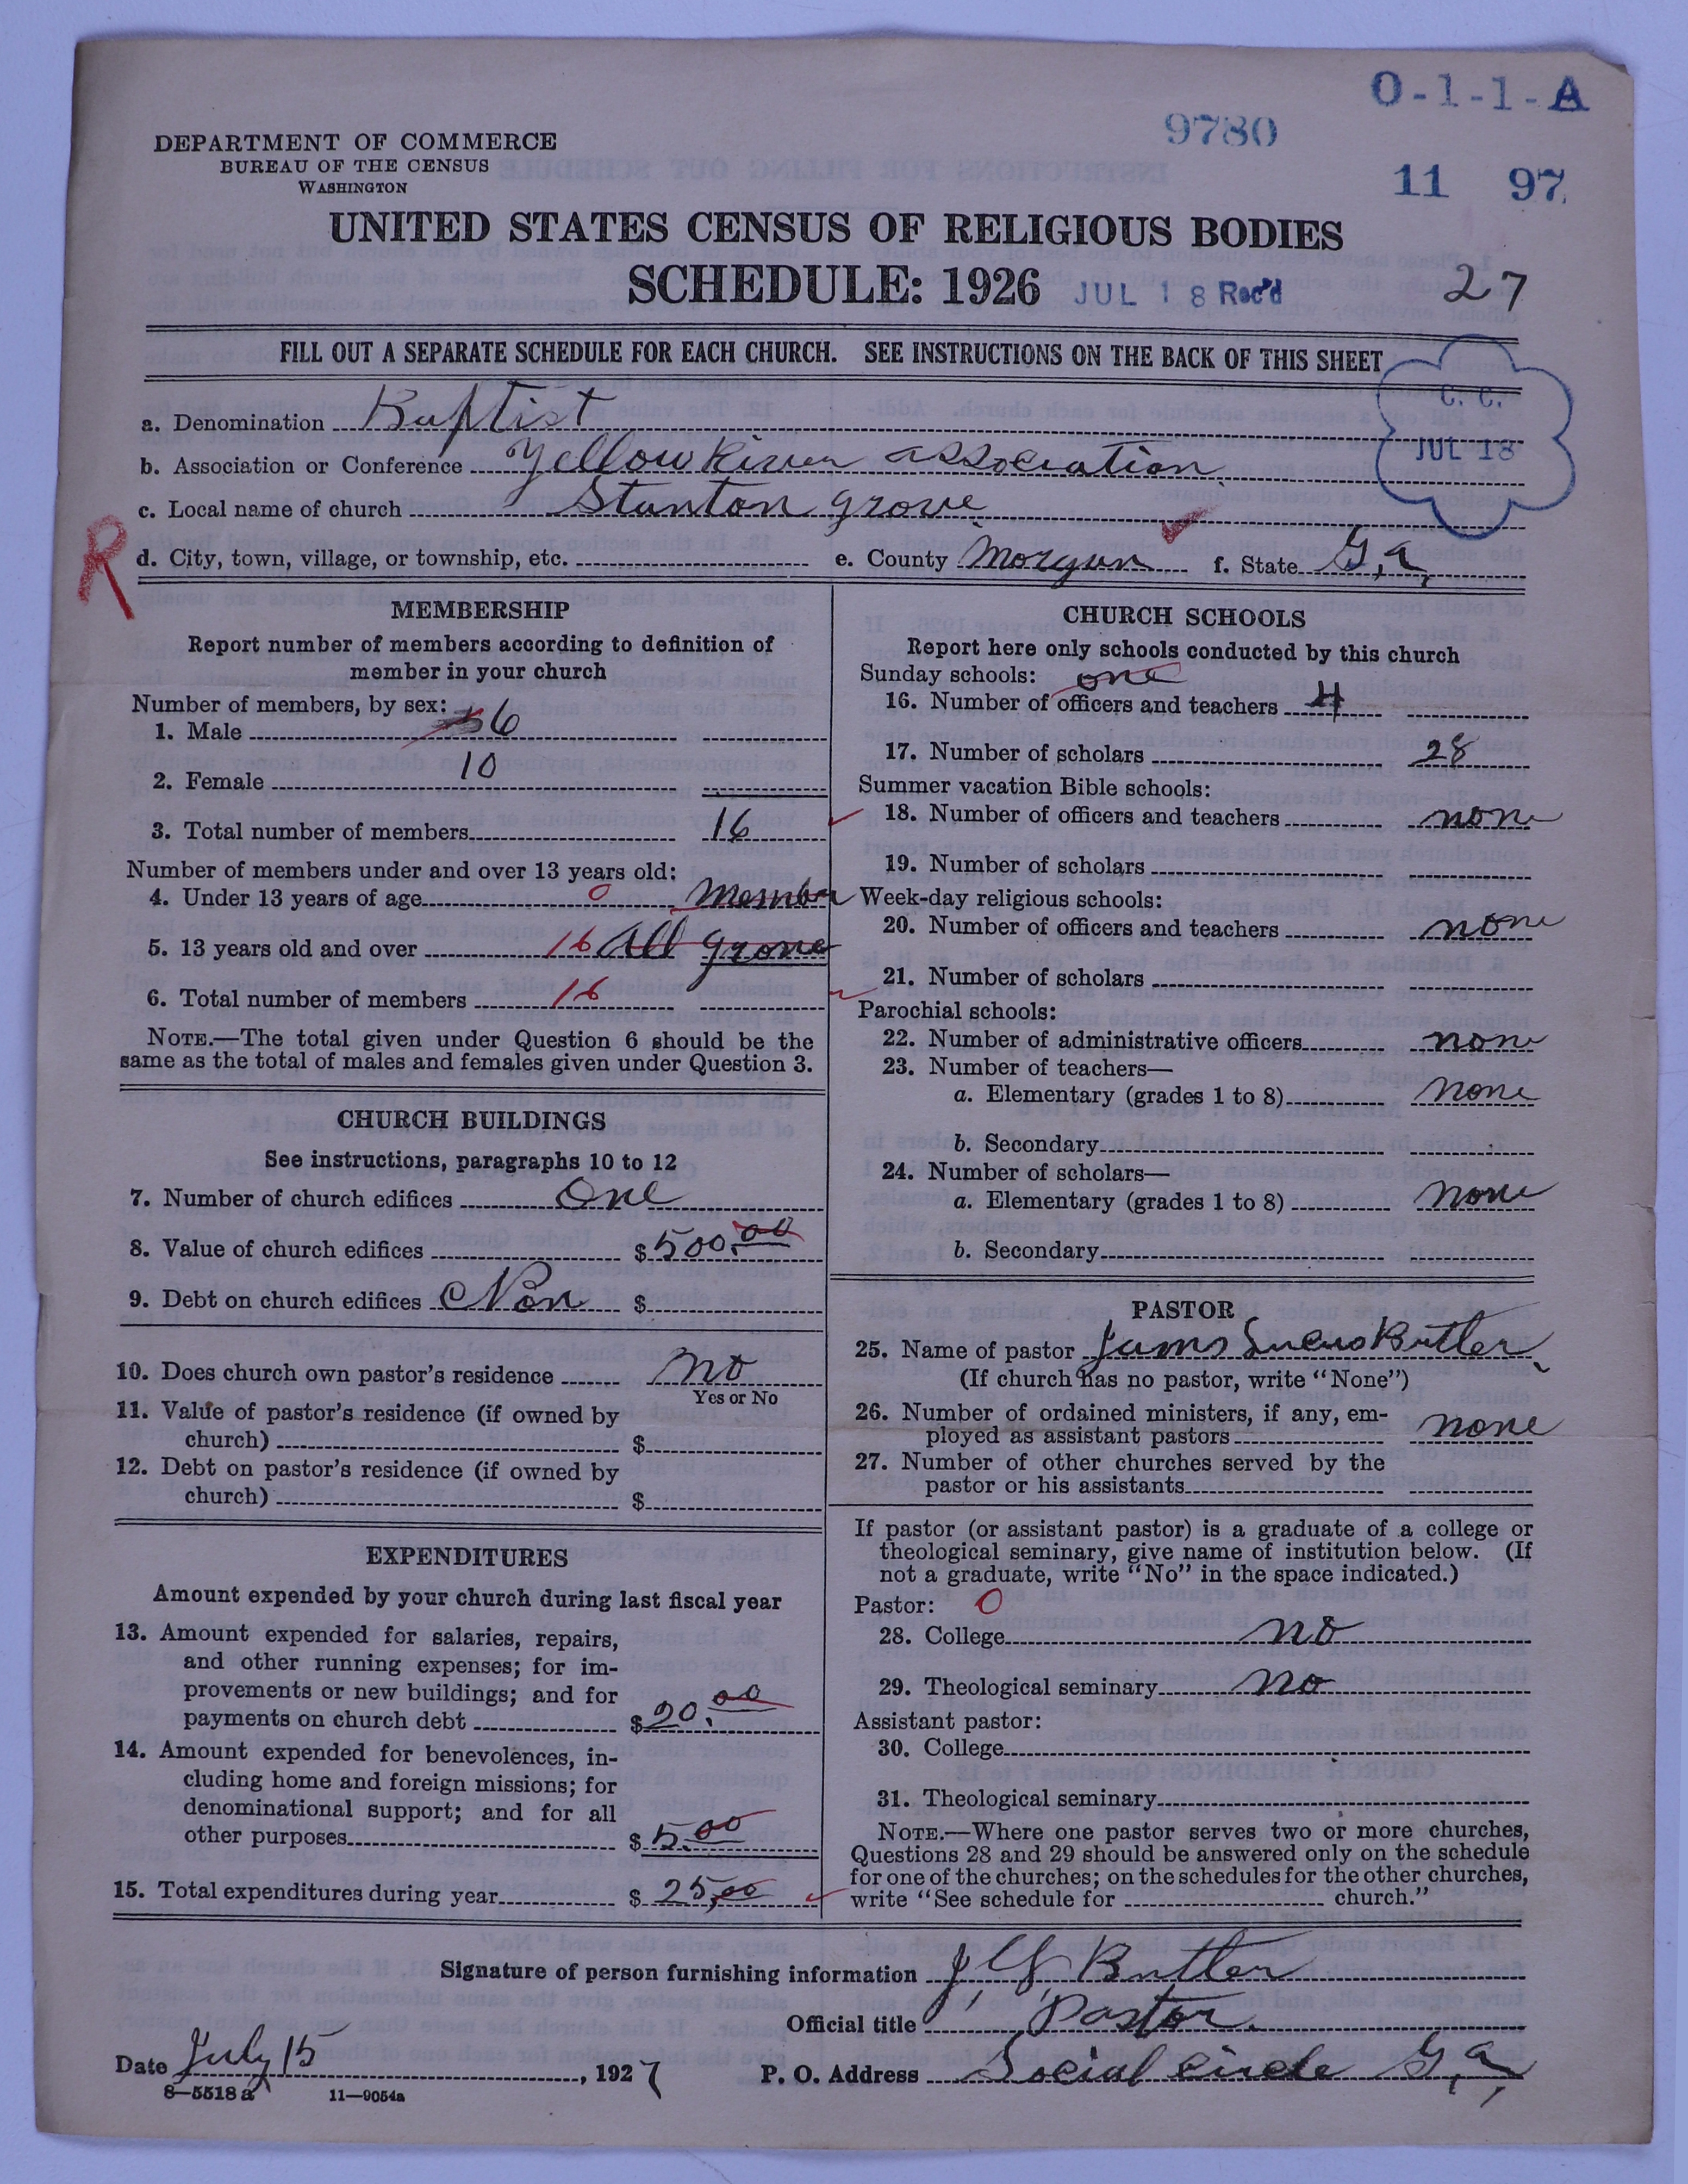 O-1-1-A
9780
11 97
DEPARTMENT OF COMMERCE
BUREAU OF THE CENSUS
WASHINGTON
UNITED STATES CENSUS OF RELIGIOUS BODIES
SCHEDULE: 1926 JUL 18 Rec'd 27
FILL OUT A SEPARATE SCHEDULE FOR EACH CHURCH. SEE INSTRUCTIONS ON THE BACK OF THIS SHEET
C. C.
JUL 18
a. Denomination Baptist
b. Association or Conference Yellow River association
c. Local name of church Stanton grove
R
d. City, town, village, or township, etc. e. County Morgan f. State Ga,
MEMBERSHIP
Report number of members according to definition of
member in your church
Number of members, by sex:
1. Male 6
2. Female 10
3. Total number of members 16
Number of members under and over 13 years old:
4. Under 13 years of age 0 Member
5. 13 years old and over 16 all grone
6. Total number of members 16
NOTE.—The total given under Question 6 should be the
same as the total of males and females given under Question 3.
CHURCH BUILDINGS
See instructions, paragraphs 10 to 12
7. Number of church edifices One
8. Value of church edifices $500.00
9. Debt on church edifices Non $
10. Does church own pastor's residence no
Yes or No
11. Value of pastor's residence (if owned by
church) $
12. Debt on pastor's residence (if owned by
church) $
EXPENDITURES
Amount expended by your church during last fiscal year
13. Amount expended for salaries, repairs,
and other running expenses; for im-
provements or new buildings; and for
payments on church debt $20.00
14. Amount expended for benevolences, in-
cluding home and foreign missions; for
denominational support; and for all
other purposes $5.00
15. Total expenditures during year $25,00
CHURCH SCHOOLS
Report here only schools conducted by this church
Sunday schools: one
16. Number of officers and teachers 4
17. Number of scholars 28
Summer vacation Bible schools:
18. Number of officers and teachers none
19. Number of scholars
Week-day religious schools:
20. Number of officers and teachers none
21. Number of scholars
Parochial schools:
22. Number of administrative officers none
23. Number of teachers—
a. Elementary (grades 1 to 8) none
b. Secondary
24. Number of scholars—
a. Elementary (grades 1 to 8) none
b. Secondary
PASTOR
25. Name of pastor Butler
(If church has no pastor, write "None")
26. Number of ordained ministers, if any, em-
ployed as assistant pastors none
27. Number of other churches served by the
pastor or his assistants
If pastor (or assistant pastor) is a graduate of a college or
theological seminary, give name of institution below. (If
not a graduate, write "No" in the space indicated.)
Pastor: 0
28. College no
29. Theological seminary no
Assistant pastor:
30. College
31. Theological seminary
NOTE.—Where one pastor serves two or more churches,
Questions 28 and 29 should be answered only on the schedule
for one of the churches; on the schedules for the other churches,
write "See schedule for church."
Signature of person furnishing information Butler
Official title Pastor
Date July 15, 1927 P. O. Address Social circle Ga,
8—5518a 11—9054a